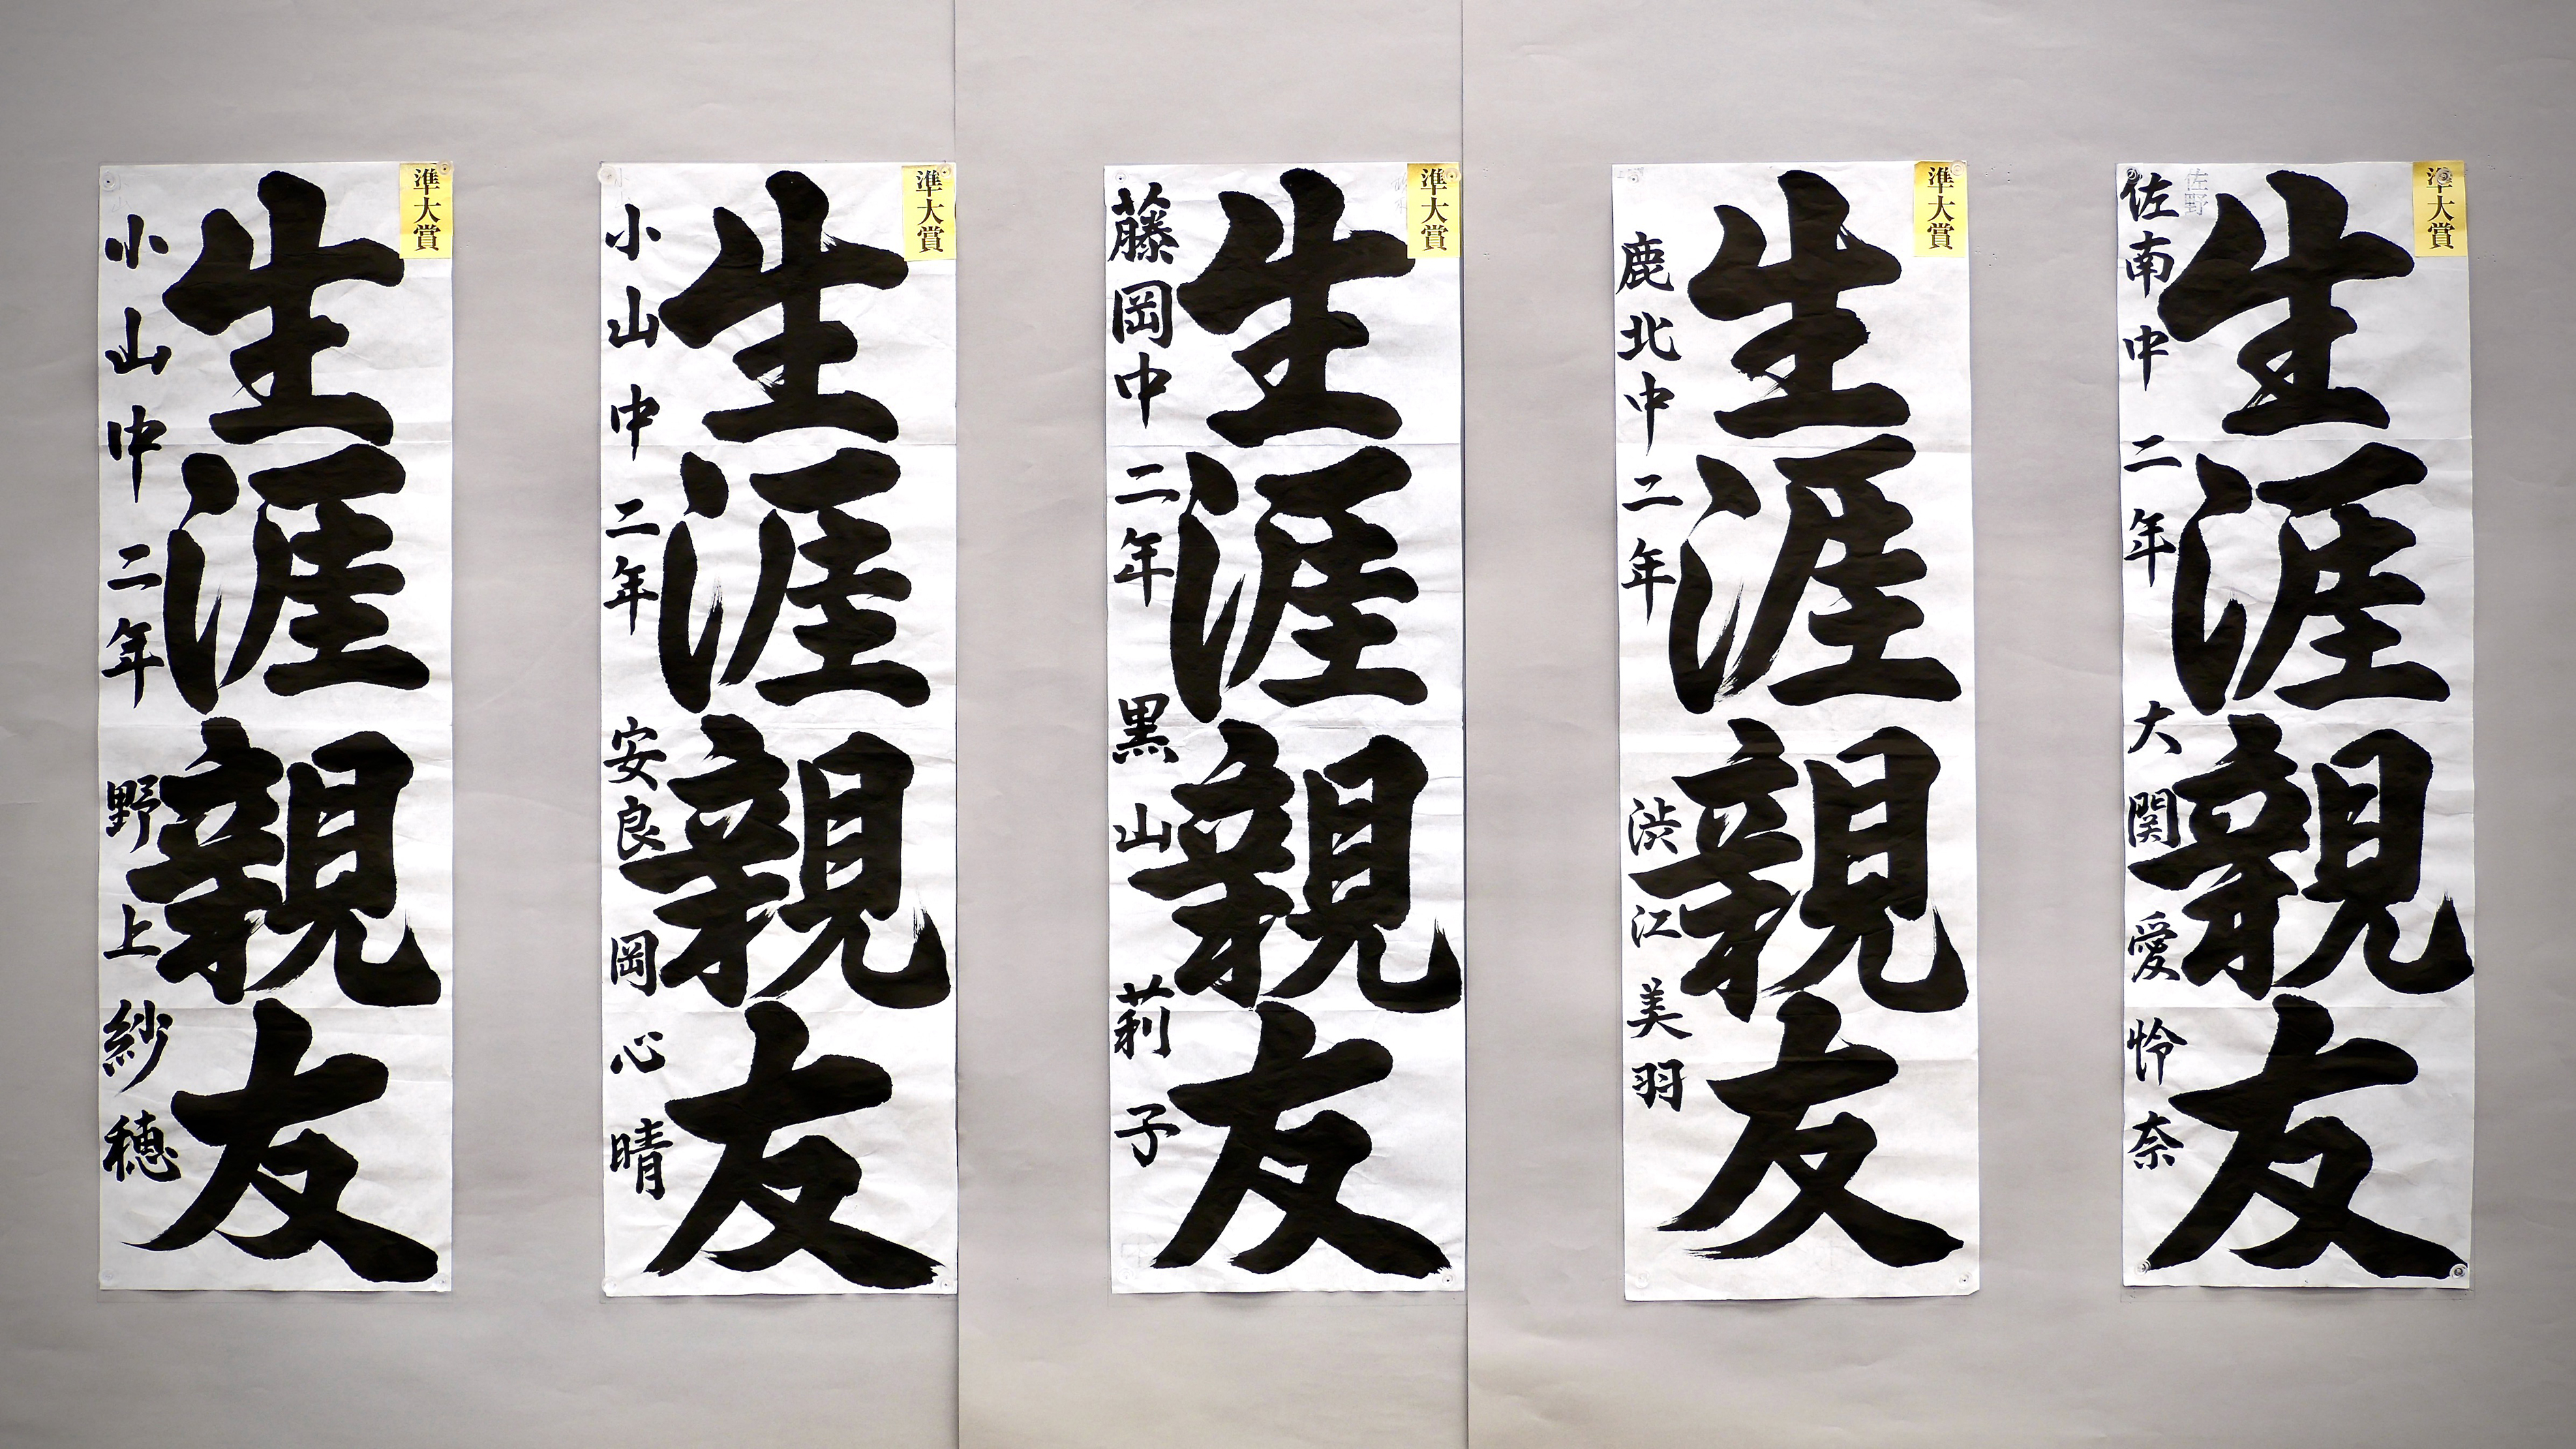 準大賞
生涯親友
小山中 二年 野上紗穂
準大賞
生涯親友
小山中 二年 安良岡心晴
準大賞
生涯親友
藤岡中 二年 黒山莉子
準大賞
生涯親友
鹿北中 二年 渋江美羽
準大賞
生涯親友
佐野
佐南中 二年 大関愛怜奈